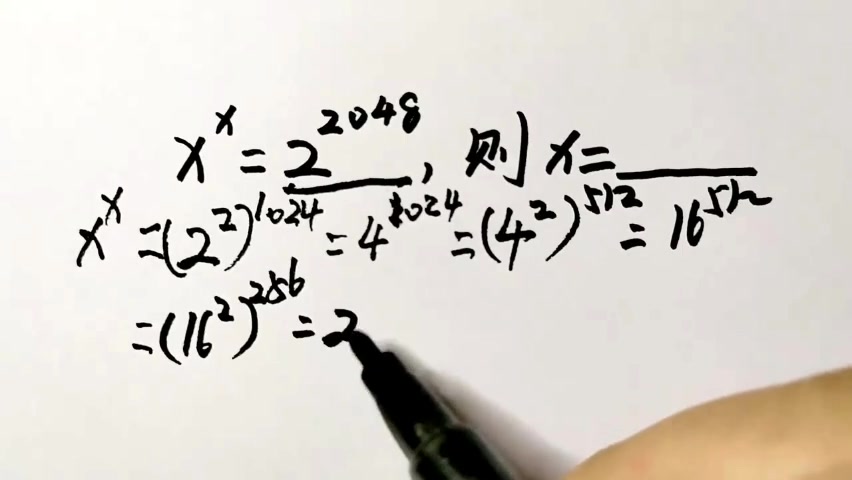 x^x = 2^2048, 则 x = ____
x^x = (2^2)^1024 = 4^1024 = (4^2)^512 = 16^512
= (16^2)^256 = 2